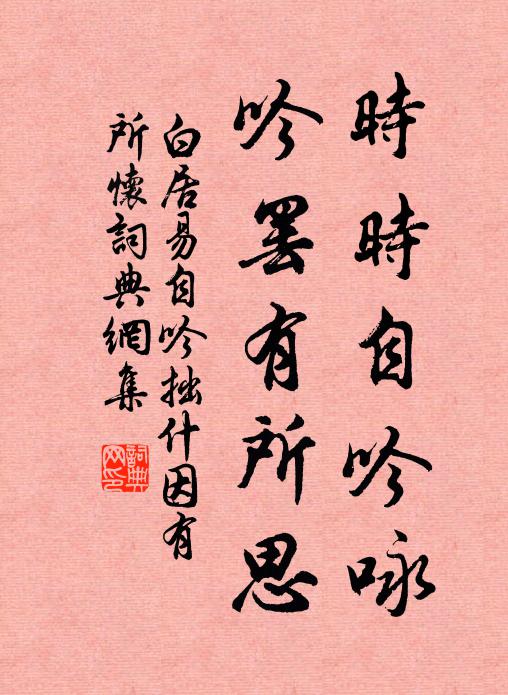 時時自吟咏
吟罷有所思
白居易自吟拙什因有
所懷詞典網集
詞典
网印